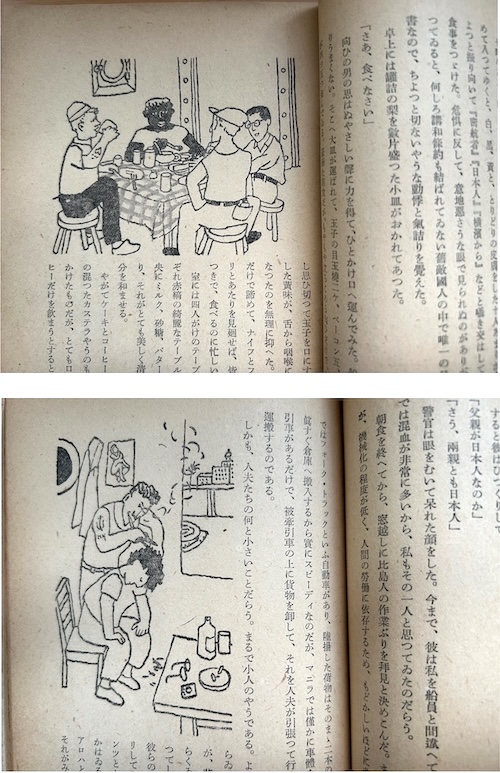 よつと振り向いて『密航者』『日本人』『横濱から』などと囁き交はして
食事をつゞけた。危惧に反して、意地悪さうな眼で見られぬのがあり
つてゐると、何しろ講和條約も結ばれてゐない舊敵國人の中で唯一の
書なので、ちよつと切ないやうな動悸と氣詰りを覺えた。
卓上には罐詰の梨を數片盛つた小皿がおかれてあつた。
「さあ、食べなさい」
向ひの男の思はぬやさしい聲に力を得て、ひとかけ口へ運んでみた。
りうまくない。そこへ大皿が運ばれて、玉子の目玉燒二ケ、ベーコン
し思ひ切つて玉子を口にす
した黄味が、舌から咽喉に
なつたのを無理に抑へた。
だけで諦めて、ナイフとフ
リとあたりを見廻せば、皆
つきで、食べるのに忙しい
室には四人がけのテーブ
ぞれ赤縞の綺麗なテーブル
央にミルク、砂糖、バター
り、それがとても美しく清
分を和ませる。
やがてケーキとコーヒー
の混つたカステラやうのも
かけたものだが、とても口
ヒーだけを飮まうとすると
すると彼はびつくりして
「父親が日本人なのか」
「さう、兩親とも日本人」
警官は眼をむいて呆れた顔をした。今まで、彼は私を船員と間違へて
では混血が非常に多いから、私もその一人と思つてゐたのだらう。
朝食を終へてから、窓越しに比島人の作業ぶりを拜見と決めこんだ。
が、機械化の程度が低く、人間の勞働に依存するため、もどかしいほどに
ではフォーク・トラックといふ自動車があり、陸揚した荷物はそのまゝ二本の
眞すぐ倉庫へ搬入するから實にスピーディなのだが、マニラでは僅かに車體
引車があるだけで、被牽引車の上に貨物を卸して、それを人夫が引張つて行
運搬するのである。
しかも、人夫たちの何と小さいことだらう。まるで小人のやうである。よ
らゐ
が、悲
らくそ
つて
彼らの
リして
ンツと
かはゐる
アロハと
それがみ